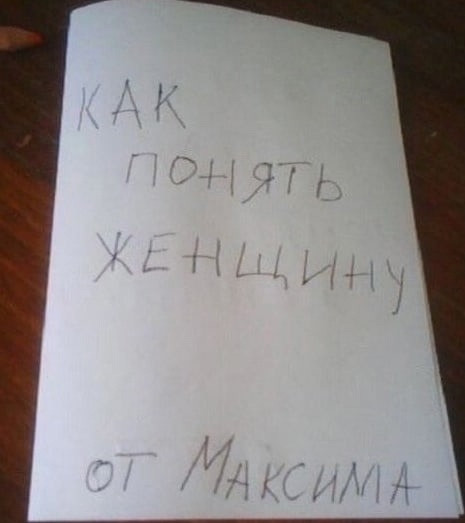 КАК
ПОНЯТЬ
ЖЕНЩИНУ
от МАКСИМА